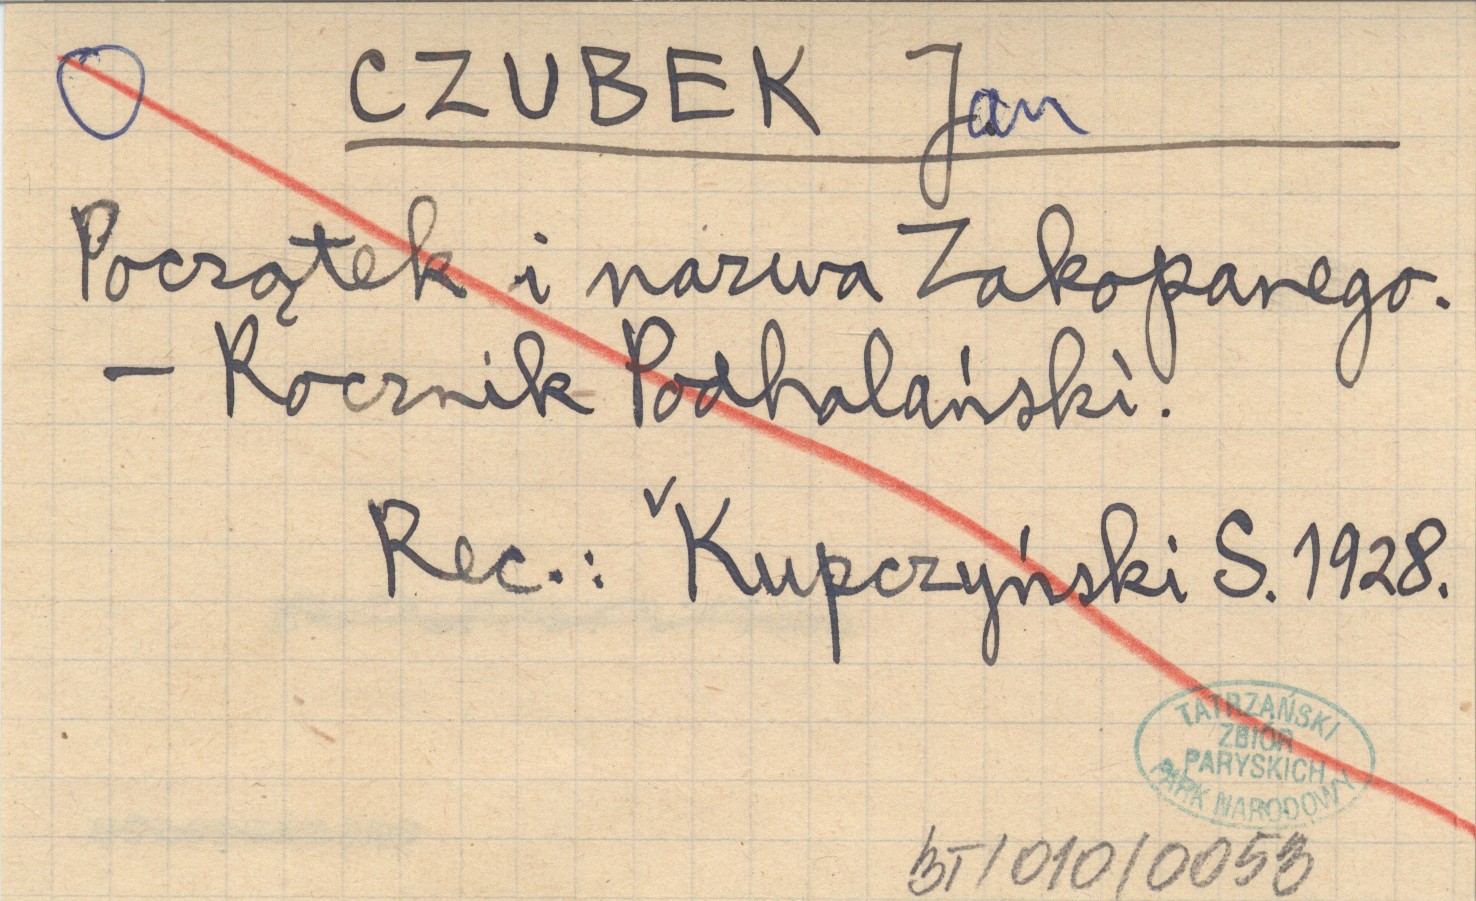 CZUBEK Jan
Początek i nazwa Zakopanego.
– Rocznik Podhalański.
Rec.: Kupczyński S. 1928.
TATRZAŃSKI
ZBIÓR
PARYSKICH
PARK NARODOWY
BT/010/0053